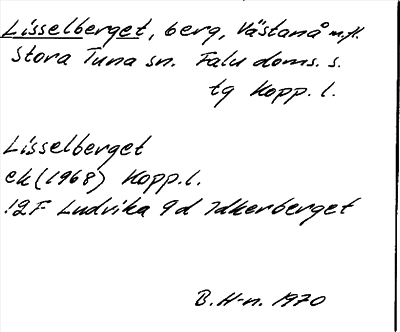 Lisselberget, berg, Västanå m.fl.
Stora Tuna sn. Falu doms. s.
tg Kopp. l.
Lisselberget
ek (1968) Kopp. l.
12F Ludvika 9d Idkerberget
B. H-n. 1970